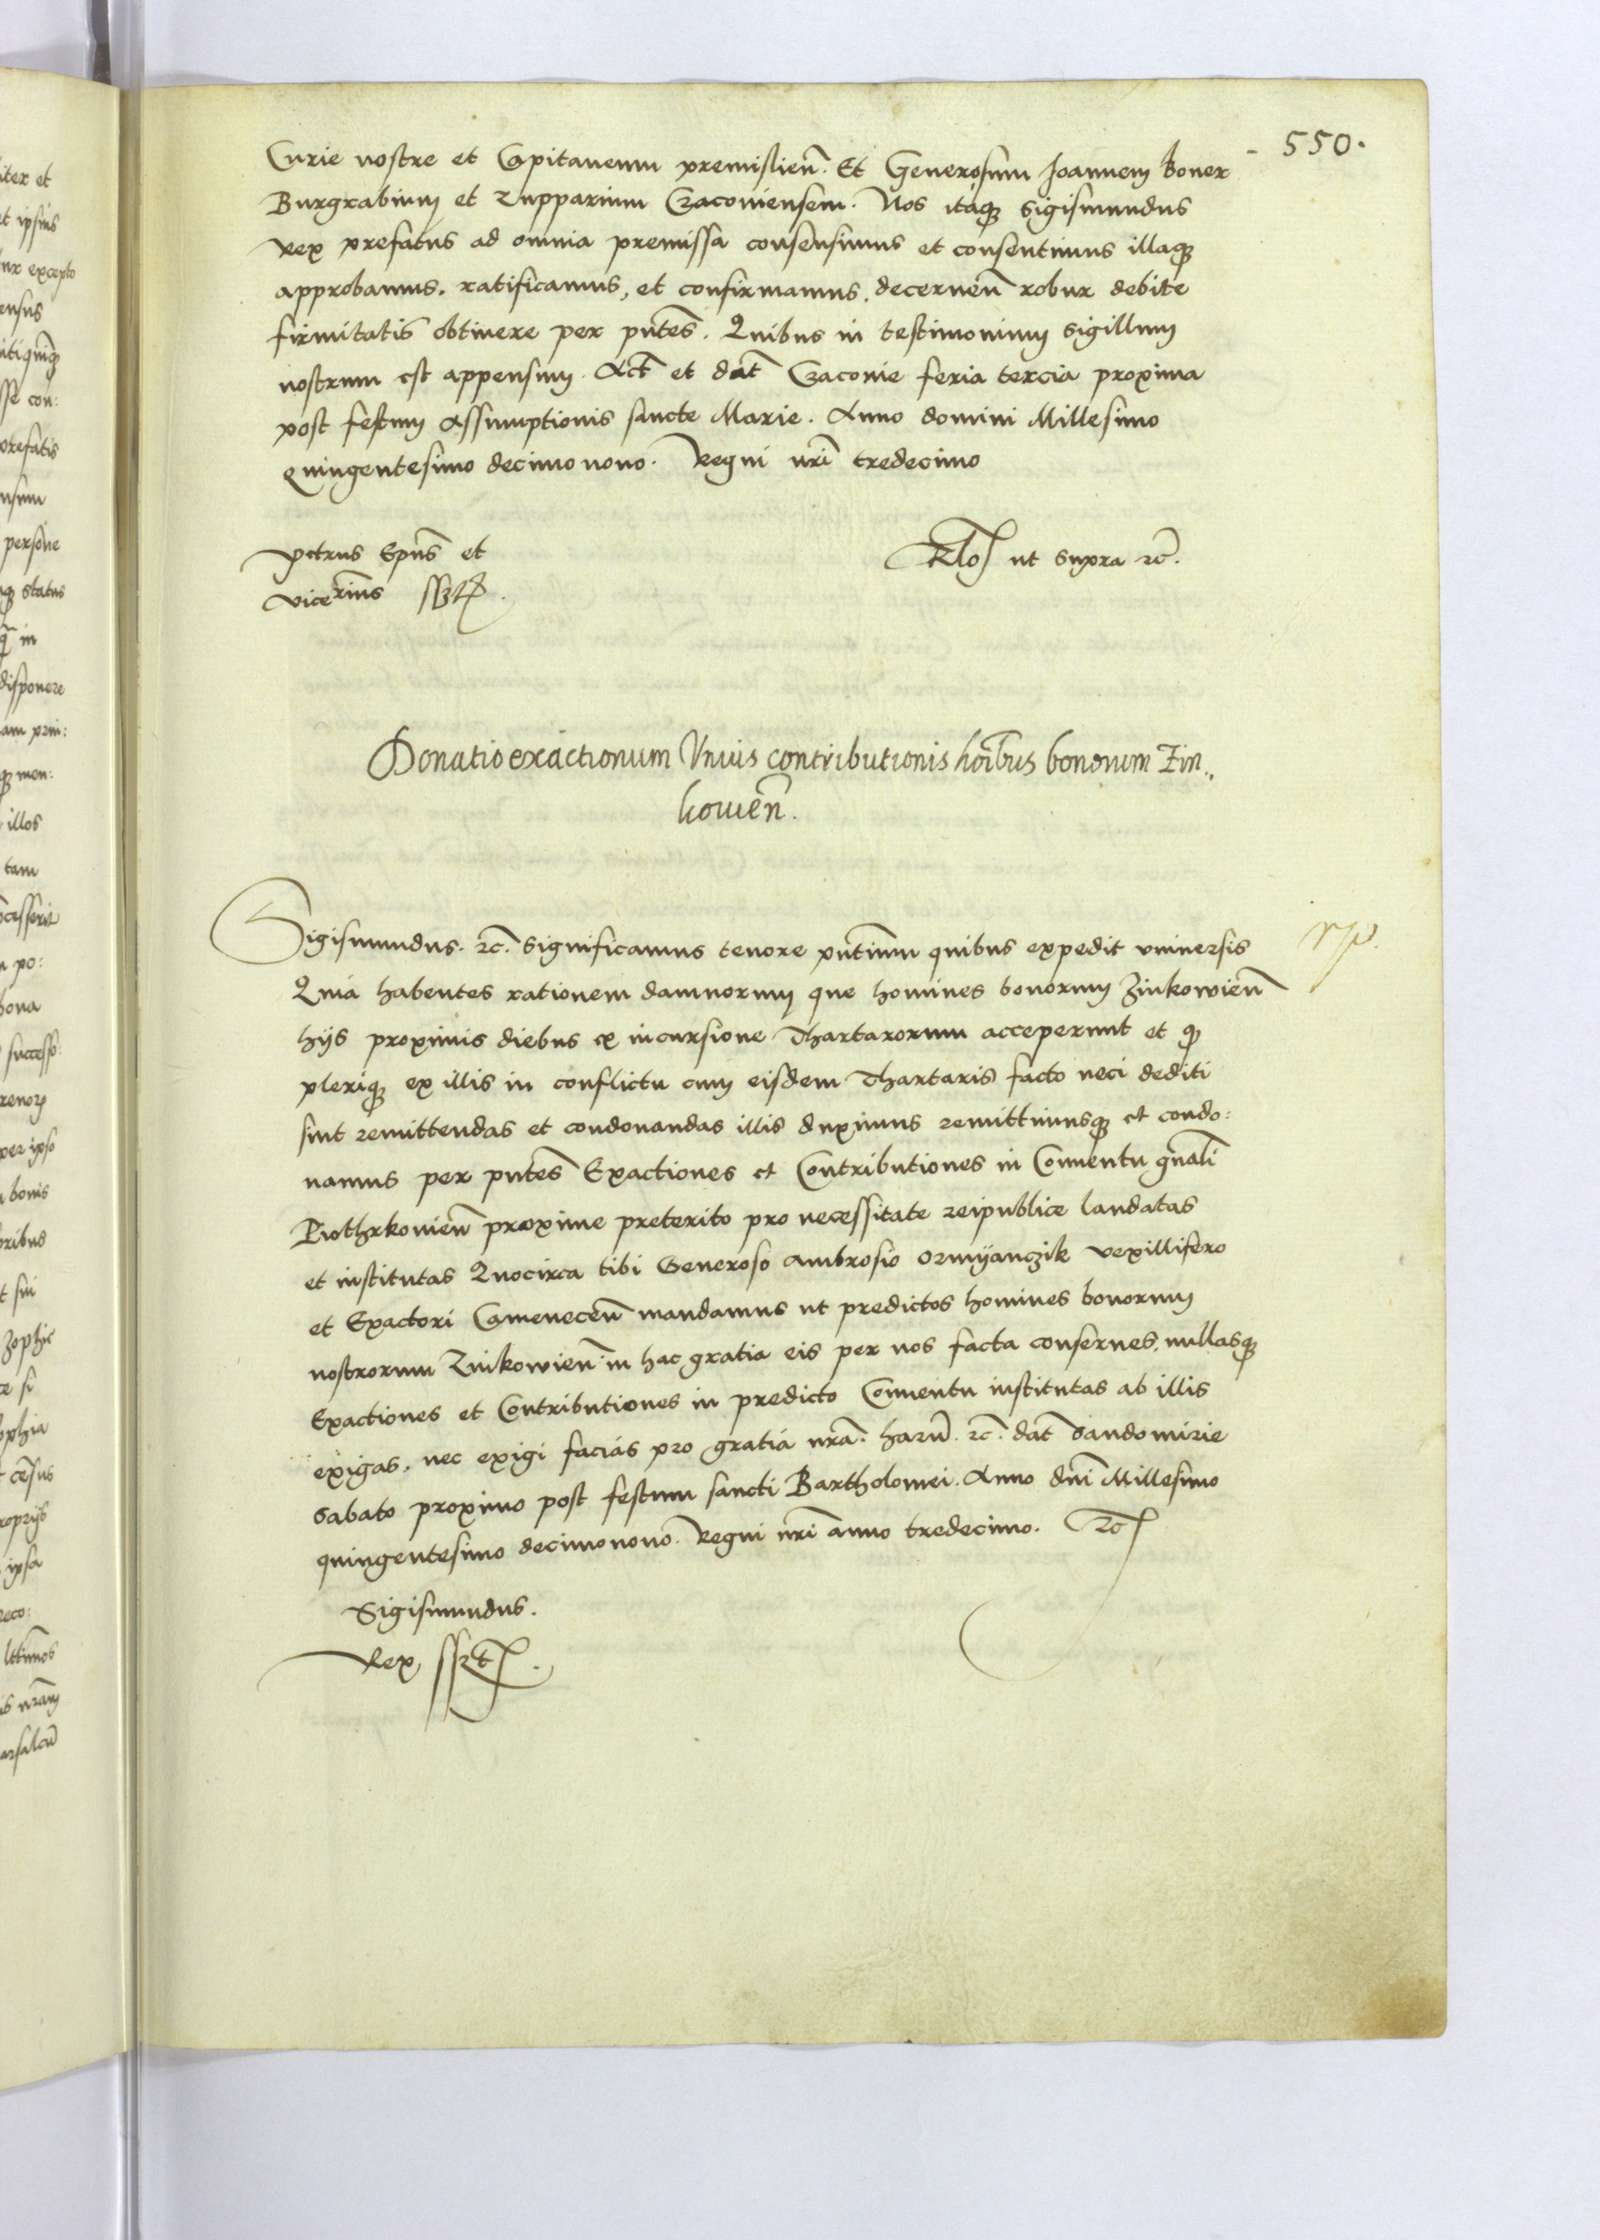 550.
Curie nostre et Capitaneum premislien̄. Et Generosum Joannem Boner
Burgrabium et Zupparium Cracouiensem. Nos itaq3 Sigismundus
Rex prefatus ad omnia premissa consensimus et consentimus illaq3
approbamus. ratificamus, et confirmamus. decernen̄ robur debite
firmitatis obtinere per pn̄tes. Quibus in testimonium sigillum
nostrum est appensum. Act̄ et dat̄ Cracouie feria tercia proxima
post festum Assumptionis sancte Marie. Anno domini Millesimo
Quingentesimo decimo nono. Regni nrī tredecimo
Petrus Ep̄us et
Vicecan̄rius sszt.
Rel̄o ut supra zc̄.
Donatio exactionum Vnius contributionis hoībus bonorum Zin„
kouien̄.
Sigismundus. zc̄. Significamus tenore pn̄tium quibus expedit vniuersis
Quia habentes rationem damnorum que homines bonorum Zinkowien̄
hijs proximis diebus ex incursione Thartarorum acceperunt et q3
pleriq3 ex illis in conflictu cum eisdem Thartaris facto neci dediti
sint remittendas et condonandas illis duximus remittimusq3 et condo:
namus per pn̄tes Exactiones et Contributiones in Conuentu gn̄ali
Piothrkouien̄ proxime preterito pro necessitate reipublice laudatas
et institutas Quocirca tibi Generoso Ambrosio Ormÿanczik vexillifero
et Exactori Camenecen̄ mandamus ut predictos homines bonorum
nostrorum Zinkowien̄ in hac gratia eis per nos facta conserues, nullasq3
Exactiones et Contributiones in predicto Conuentu institutas ab illis
exigas, nec exigi facias pro gratia nrā. harum̄. zc̄. dat̄ Sandomirie
Sabato proximo post festum sancti Bartholomei. Anno dn̄i Millesimo
quingentesimo decimo nono. Regni nrī anno tredecimo. zc̄
Sigismundus.
Rex sszt.